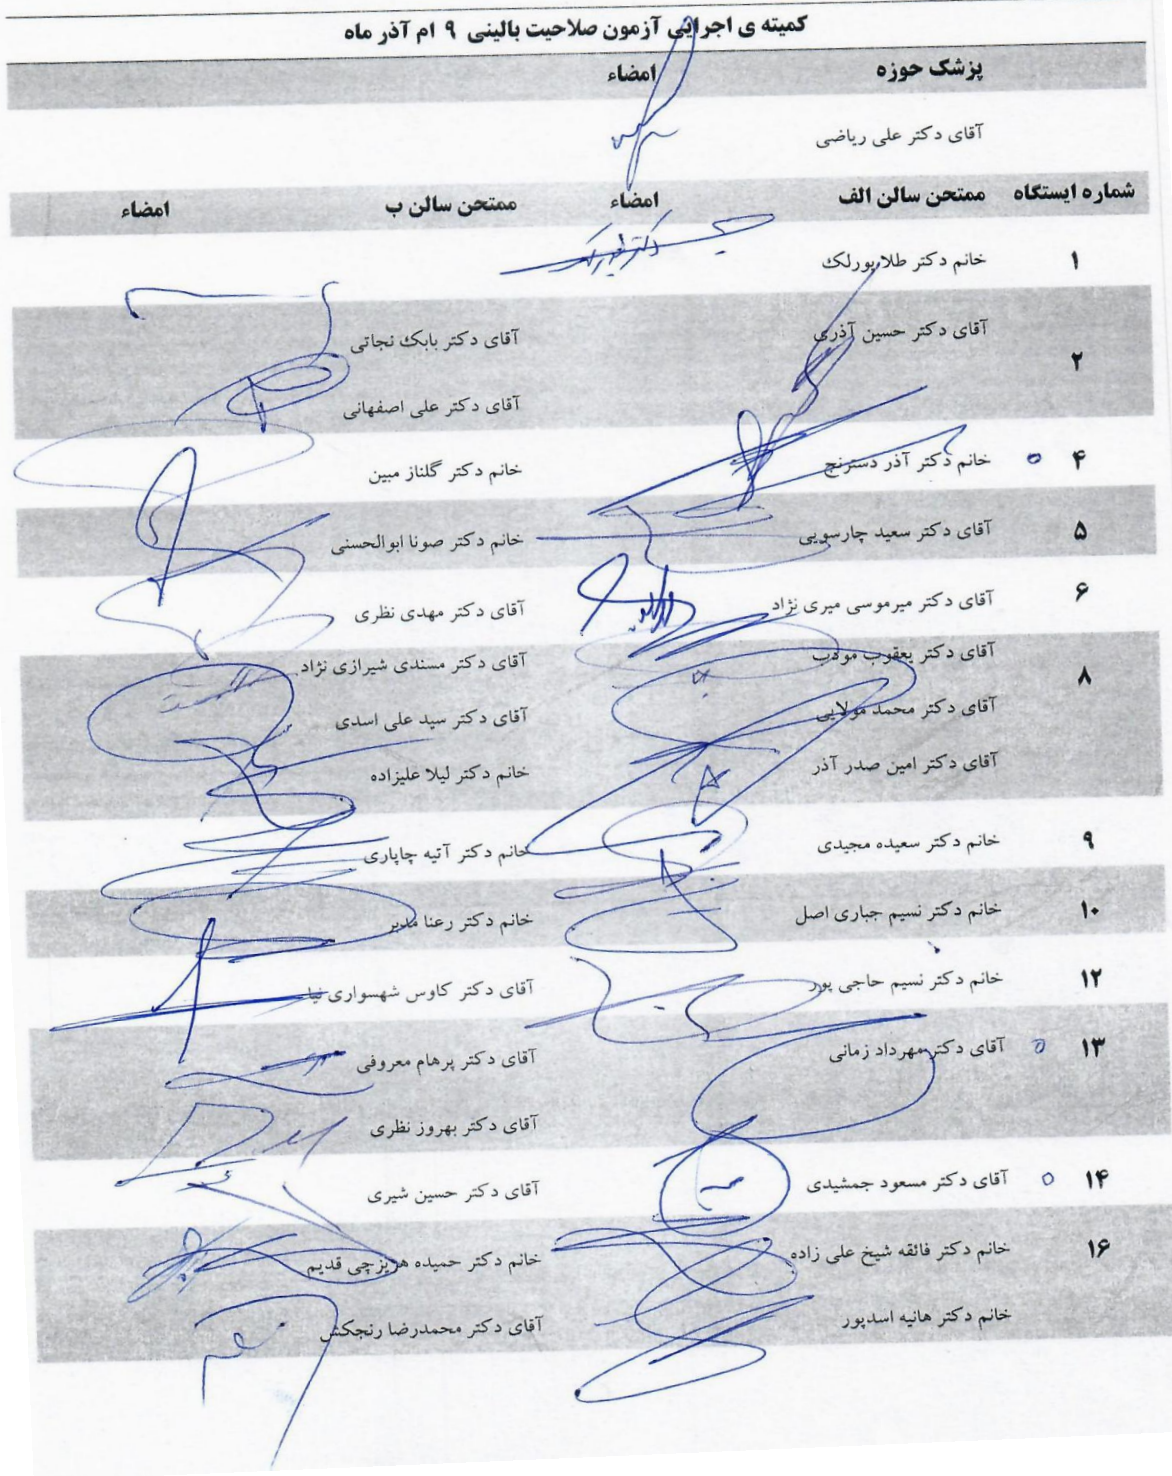 کمیته ی اجرایی آزمون صلاحیت بالینی ۹ ام آذر ماه
پزشک حوزه امضاء
آقای دکتر علی ریاضی
شماره ایستگاه ممتحن سالن الف امضاء ممتحن سالن ب امضاء
۱ خانم دکتر طلا پورلک
آقای دکتر حسین آذری آقای دکتر بابک نجاتی
۲
آقای دکتر علی اصفهانی
۴ خانم دکتر آذر دسترنج خانم دکتر گلناز مبین
۵ آقای دکتر سعید چارسویی خانم دکتر صونا ابوالحسنی
۶ آقای دکتر میرموسی میری نژاد آقای دکتر مهدی نظری
آقای دکتر یعقوب مولاب آقای دکتر مسندی شیرازی نژاد
۸
آقای دکتر محمد مولایی آقای دکتر سید علی اسدی
آقای دکتر امین صدر آذر خانم دکتر لیلا علیزاده
۹ خانم دکتر سعیده مجیدی خانم دکتر آتیه چاپاری
۱۰ خانم دکتر نسیم جباری اصل خانم دکتر رعنا مدبر
۱۲ خانم دکتر نسیم حاجی پور آقای دکتر کاوس شهسواری نیا
۱۳ آقای دکتر مهرداد زمانی آقای دکتر پرهام معروفی
آقای دکتر بهروز نظری
۱۴ آقای دکتر مسعود جمشیدی آقای دکتر حسین شیری
۱۶ خانم دکتر فائقه شیخ علی زاده خانم دکتر حمیده هریزچی قدیم
خانم دکتر هانیه اسدپور آقای دکتر محمدرضا رنجکش